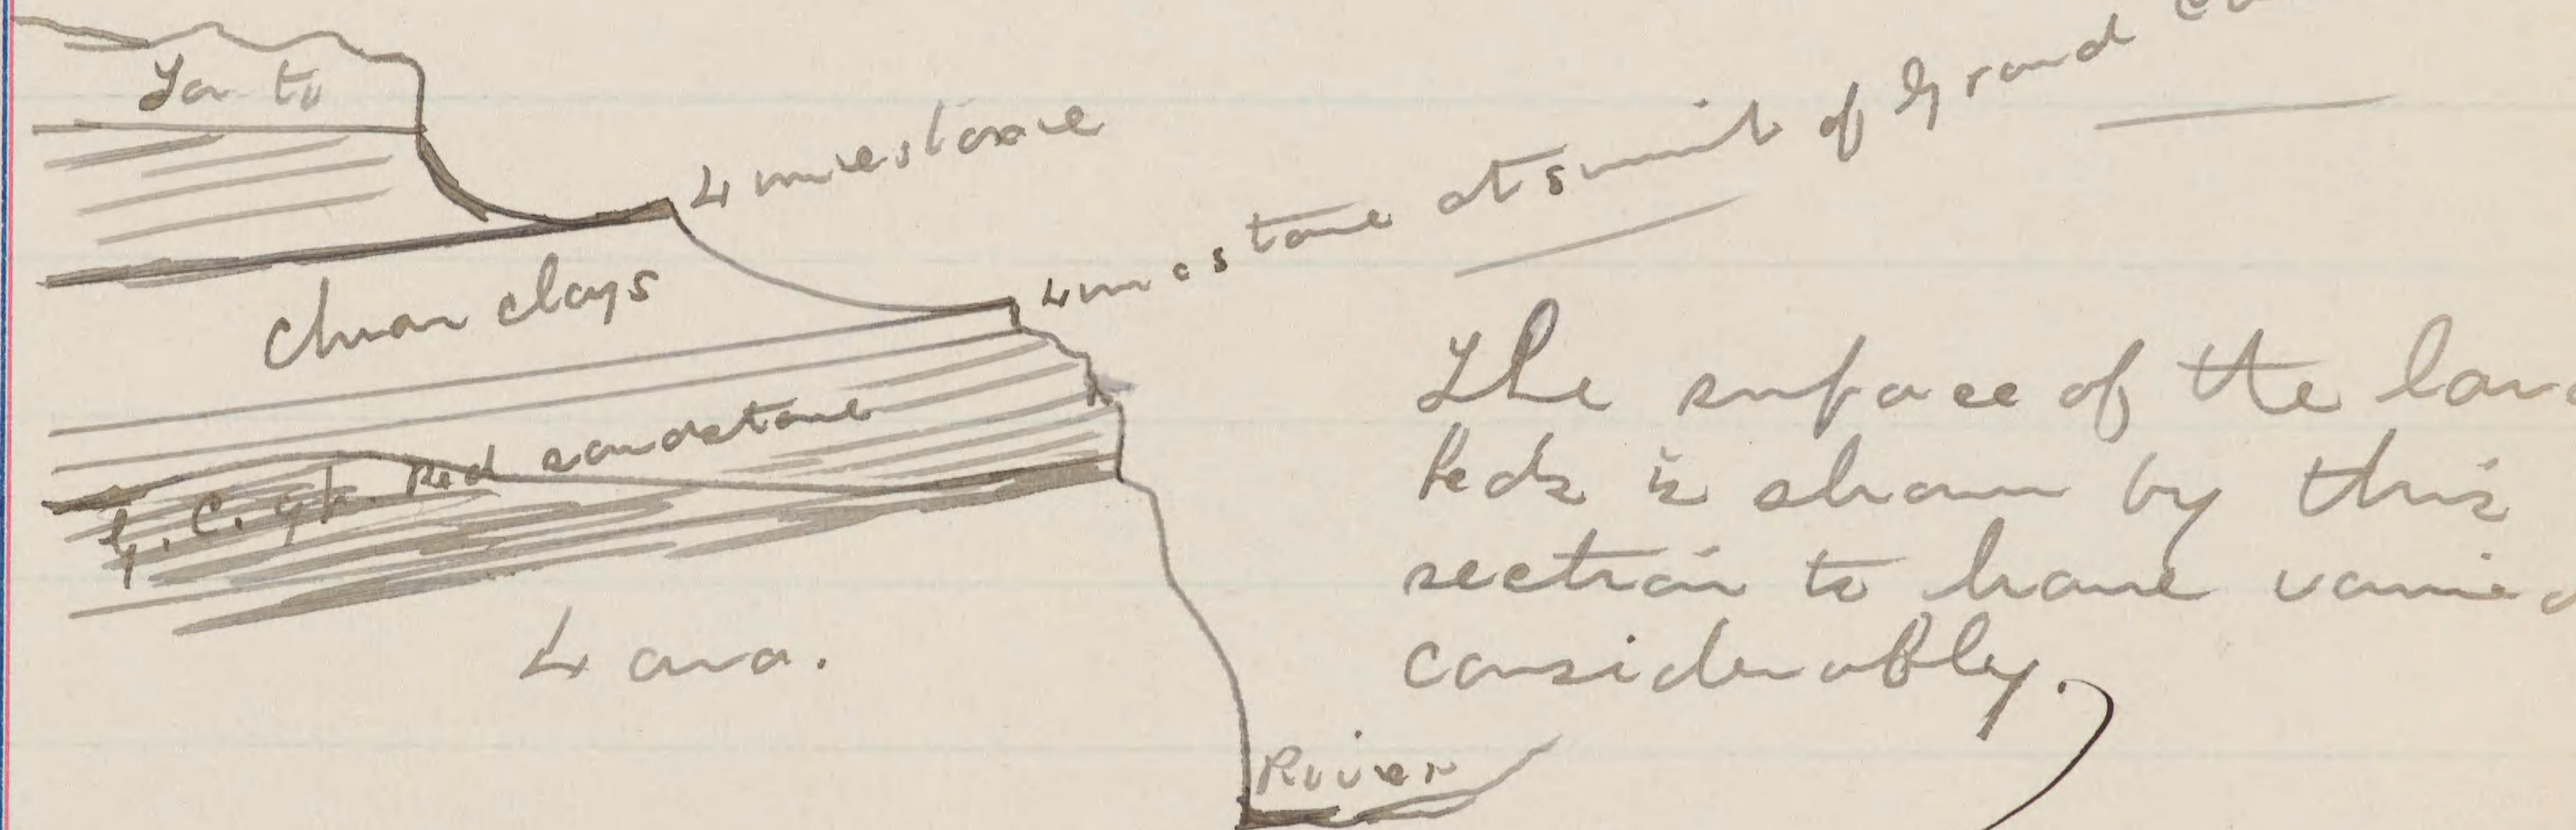 Tonto
Limestone
Limestone at sumit of Grand
Chuar clays
G. C. gp. Red sandstone
Lava.
River
The surface of the lava
beds is shown by this
section to have varied
considerably.